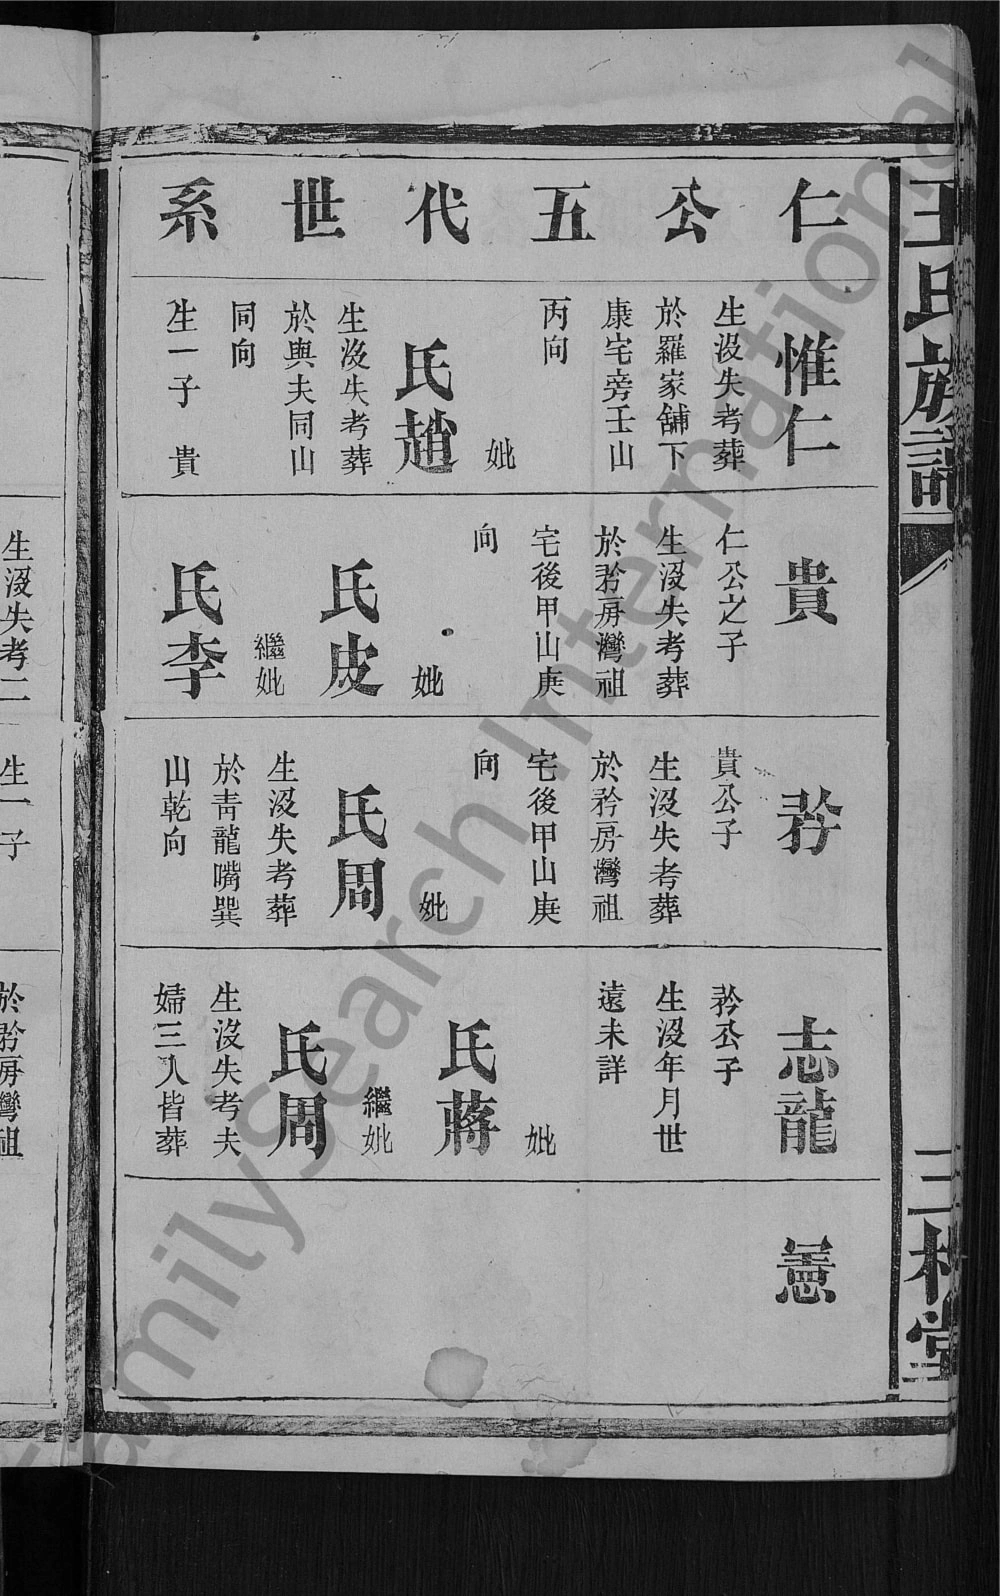 王氏族譜
三槐堂
仁公五代世系
惟仁
生沒失考葬
於羅家舖下
康宅旁壬山
丙向
妣
氏趙
生沒失考葬
於與夫同山
同向
生一子 貴
貴
仁公之子
生沒失考葬
於矜房灣祖
宅後甲山庚
向
妣
氏皮
繼妣
氏李
矜
貴公子
生沒失考葬
於矜房灣祖
宅後甲山庚
向
妣
氏周
生沒失考葬
於靑龍嘴巽
山乾向
志龍
矜公子
生沒年月世
遠未詳
妣
氏蔣
繼妣
氏周
生沒失考夫
婦三人皆葬
憲
生沒失考二
生一子
於矜房灣祖
FamilySearch International